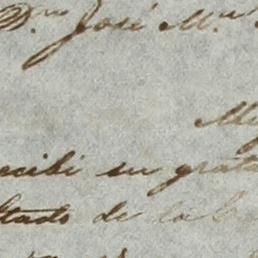 Dn José Ma.
My
ecibi su grata
ltado de la